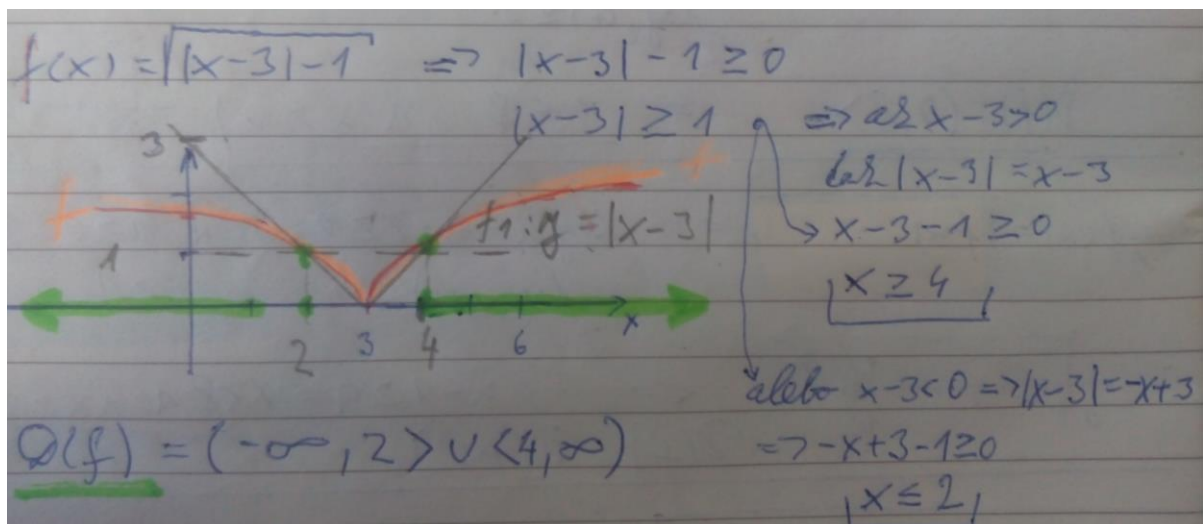 f(x) = √|x-3|-1 => |x-3| - 1 ≥ 0
|x-3| ≥ 1
=> ak x-3>0
tak |x-3| = x-3
x-3-1 ≥ 0
x ≥ 4
3
f
f
f1: y = |x-3|
1
2 3 4 6 x
alebo x-3<0 => |x-3| = -x+3
=> -x+3-1≥0
x ≤ 2
D(f) = (-∞, 2> ∪ <4, ∞)